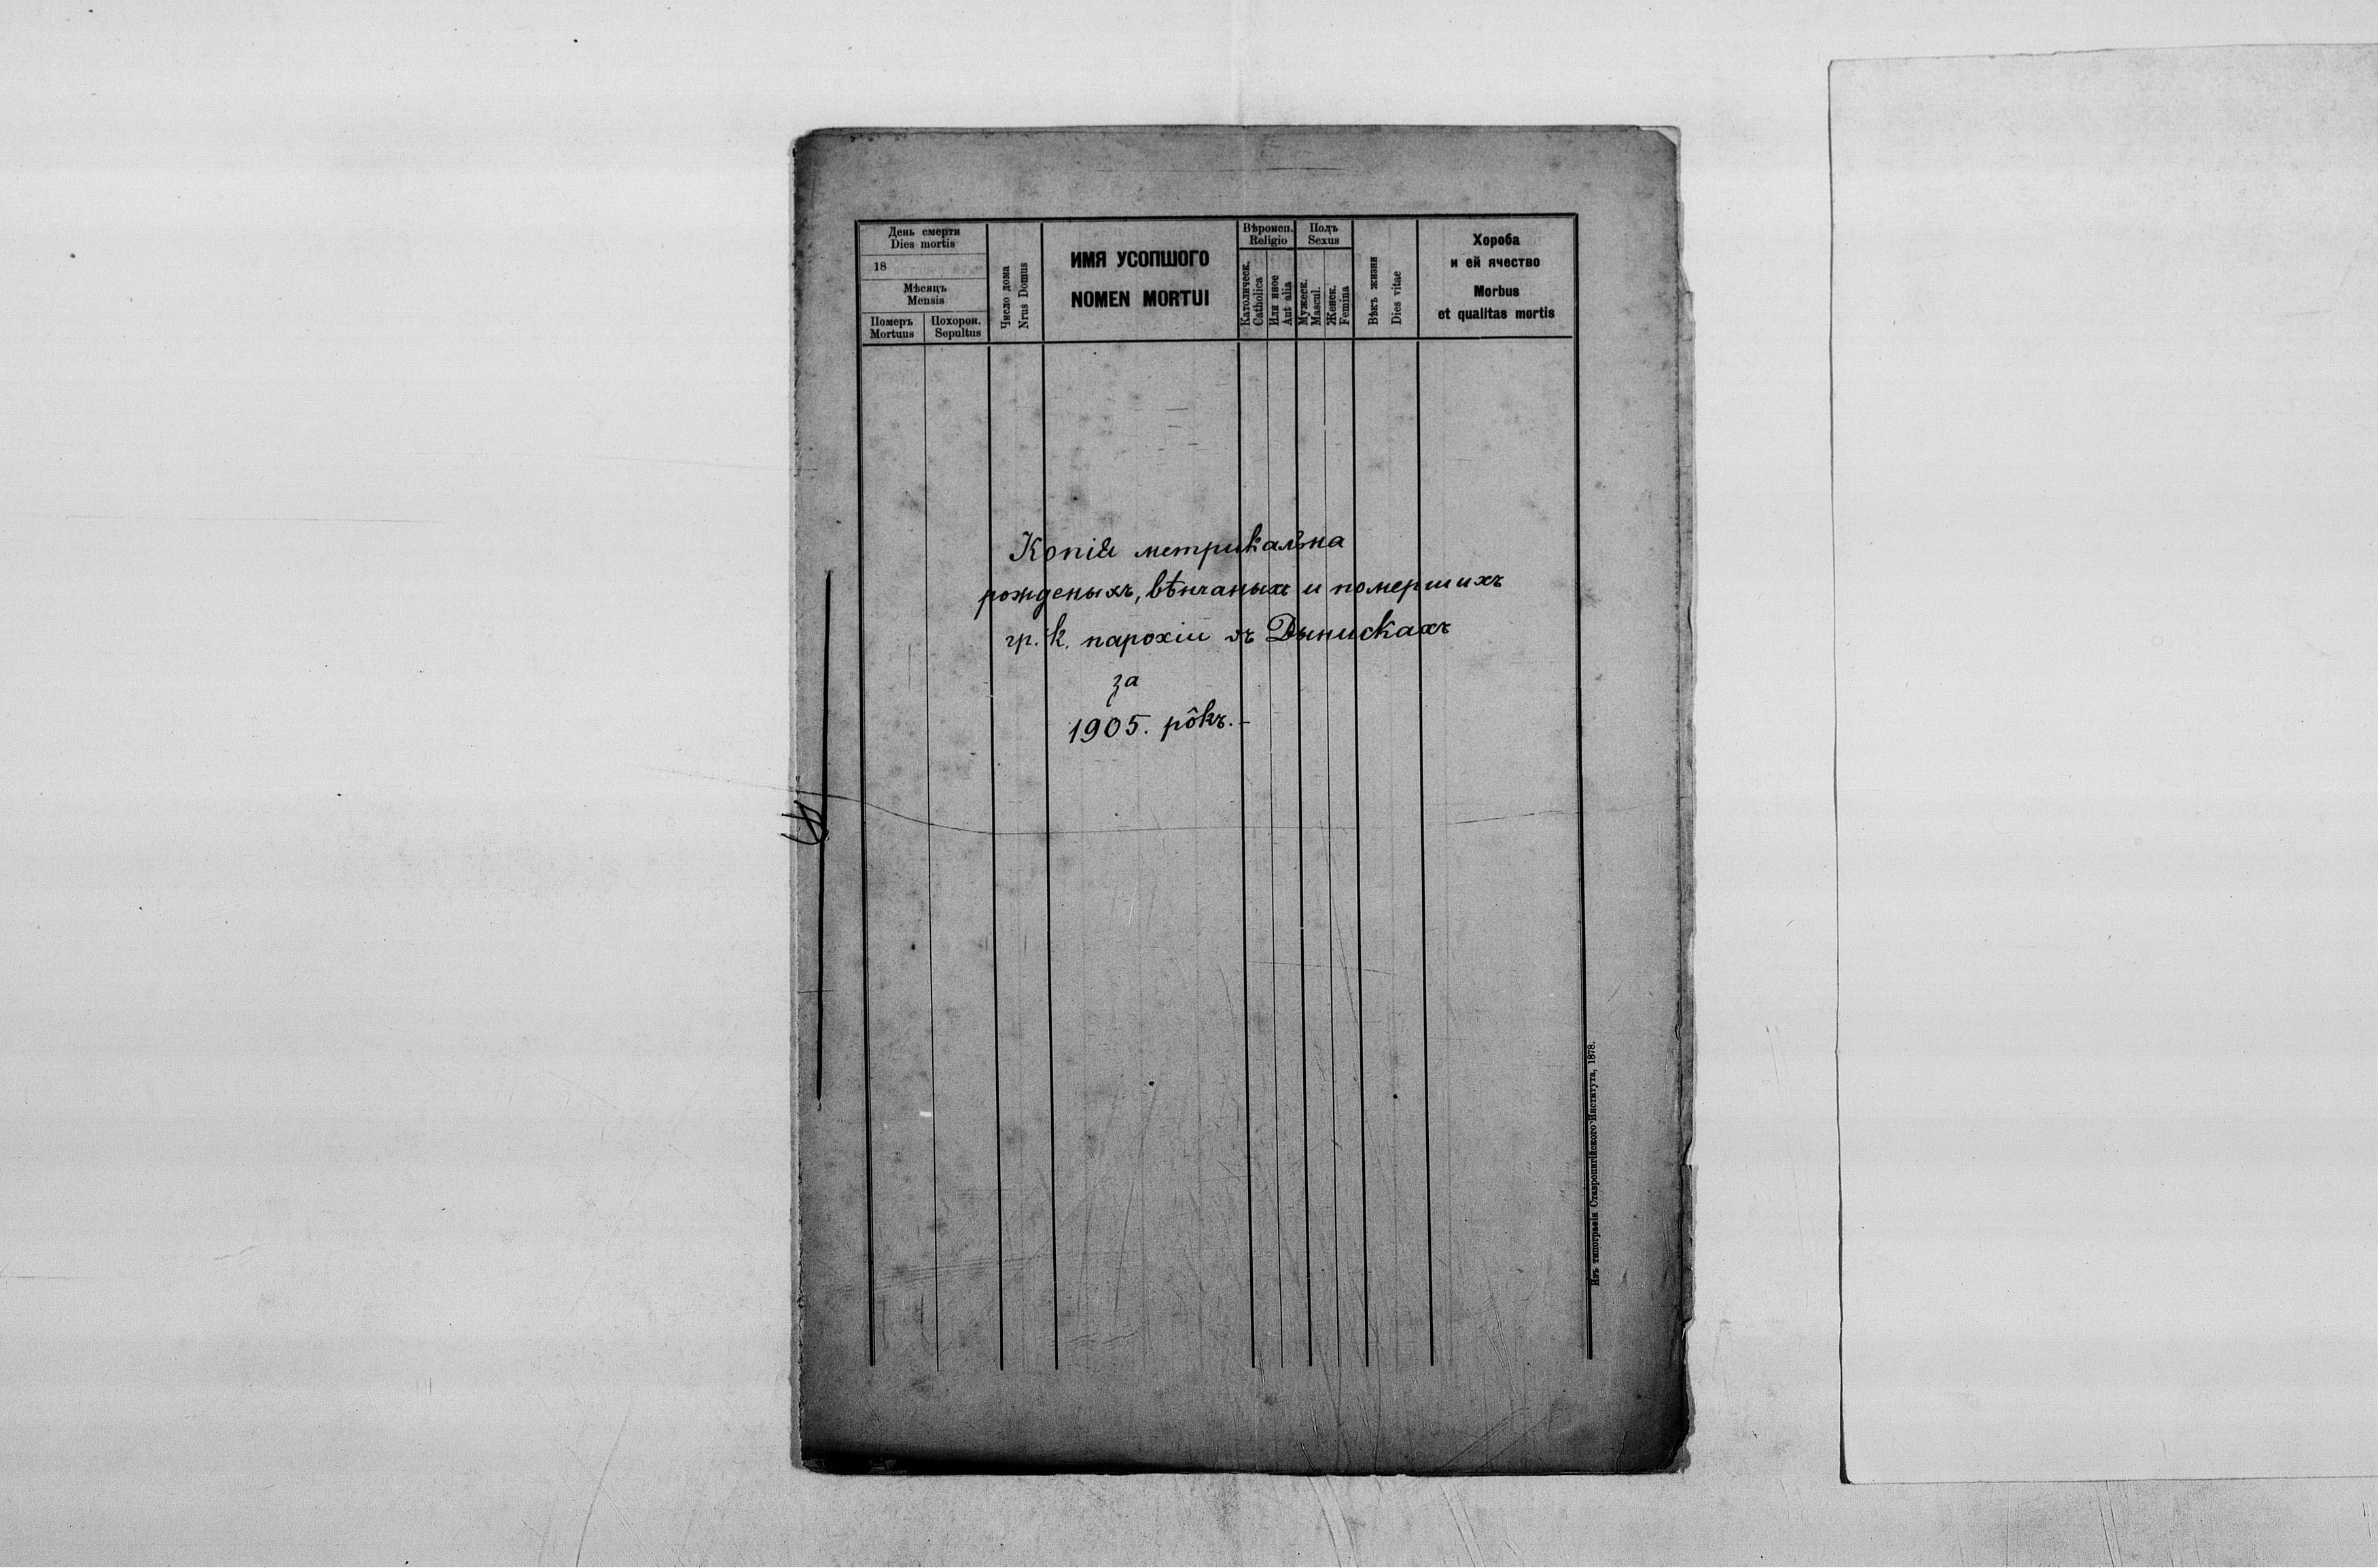 День смерти
Dies mortis
18
Мѣсяцъ
Mensis
Померъ
Mortuus
Похорон.
Sepultus
Число дома
Nrus Domus
ИМЯ УСОПШОГО
NOMEN MORTUI
Вѣроисп.
Religio
Католическ.
Catholica
Или иное
Aut alia
Полъ
Sexus
Мужеск.
Mascul.
Женск.
Femina
Вѣкъ жизни
Dies vitae
Хороба
и ей ячество
Morbus
et qualitas mortis
Копія метрикальна
рожденыхъ, вѣнчаныхъ и помершихъ
гр. к. парохіи въ Дынискахъ
за
1905. рôкъ.–
Изъ типографіи Ставропигійского Института, 1878.